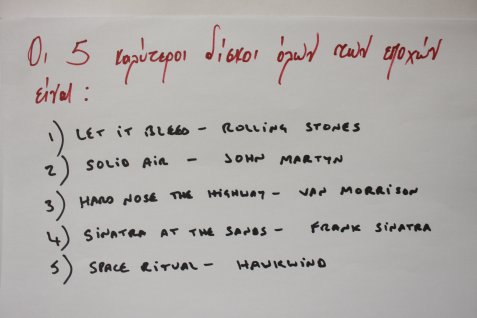 Οι 5 καλύτεροι δίσκοι όλων των εποχών
είναι :
1) LET IT BLEED - ROLLING STONES
2) SOLID AIR - JOHN MARTYN
3) HARD NOSE THE HIGHWAY - VAN MORRISON
4) SINATRA AT THE SANDS - FRANK SINATRA
5) SPACE RITUAL - HAWKWIND